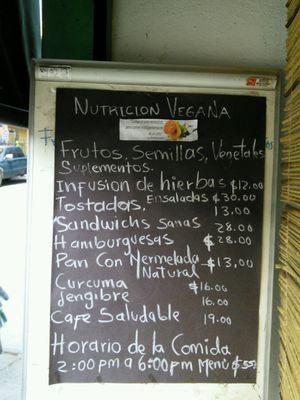 NUTRICION VEGANA
Frutos, Semillas, Vegetales
Suplementos.
Infusion de hierbas $12.00
Tostadas, Ensaladas $30.00
13.00
Sandwichs sanas 28.00
Hamburguesas $28.00
Pan Con Mermelada $13,00
Natural
Curcuma $16.00
Jengibre 16.00
Cafe Saludable 19.00
Horario de la Comida
2:00pm a 6:00pm Menú